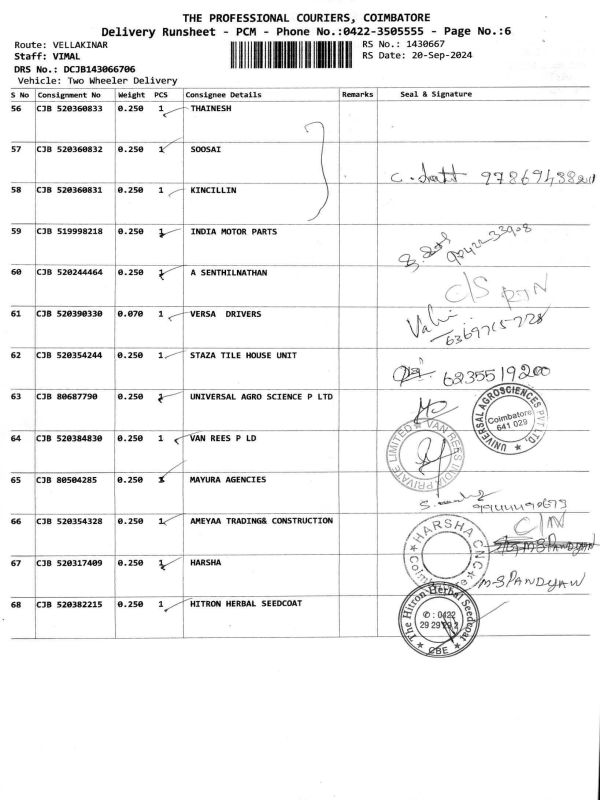 THE PROFESSIONAL COURIERS, COIMBATORE
Delivery Runsheet - PCM - Phone No.:0422-3505555 - Page No.:6
Route: VELLAKINAR RS No.: 1430667
Staff: VIMAL RS Date: 20-Sep-2024
DRS No.: DCJB143066706
Vehicle: Two Wheeler Delivery
S No Consignment No Weight PCS Consignee Details Remarks Seal & Signature
56 CJB 520360833 0.250 1 THAINESH
57 CJB 520360832 0.250 1 SOOSAI
58 CJB 520360831 0.250 1 KINCILLIN
59 CJB 519998218 0.250 1 INDIA MOTOR PARTS
60 CJB 520244464 0.250 1 A SENTHILNATHAN
C/S
61 CJB 520390330 0.070 1 VERSA DRIVERS
6369715728
62 CJB 520354244 0.250 1 STAZA TILE HOUSE UNIT
6235519200
63 CJB 80687790 0.250 1 UNIVERSAL AGRO SCIENCE P LTD
UNIVERSAL AGROSCIENCES PVT. LTD.
Coimbatore
641 029
64 CJB 520384830 0.250 1 VAN REES P LD
VAN REES INDIA PRIVATE LIMITED
65 CJB 80504285 0.250 1 MAYURA AGENCIES
66 CJB 520354328 0.250 1 AMEYAA TRADING& CONSTRUCTION
C/N
67 CJB 520317409 0.250 1 HARSHA
HARSHA CNC
M-S PANDYAN
68 CJB 520382215 0.250 1 HITRON HERBAL SEEDCOAT
The Hitron Herbal Seedcoat
✆ : 0422
CBE